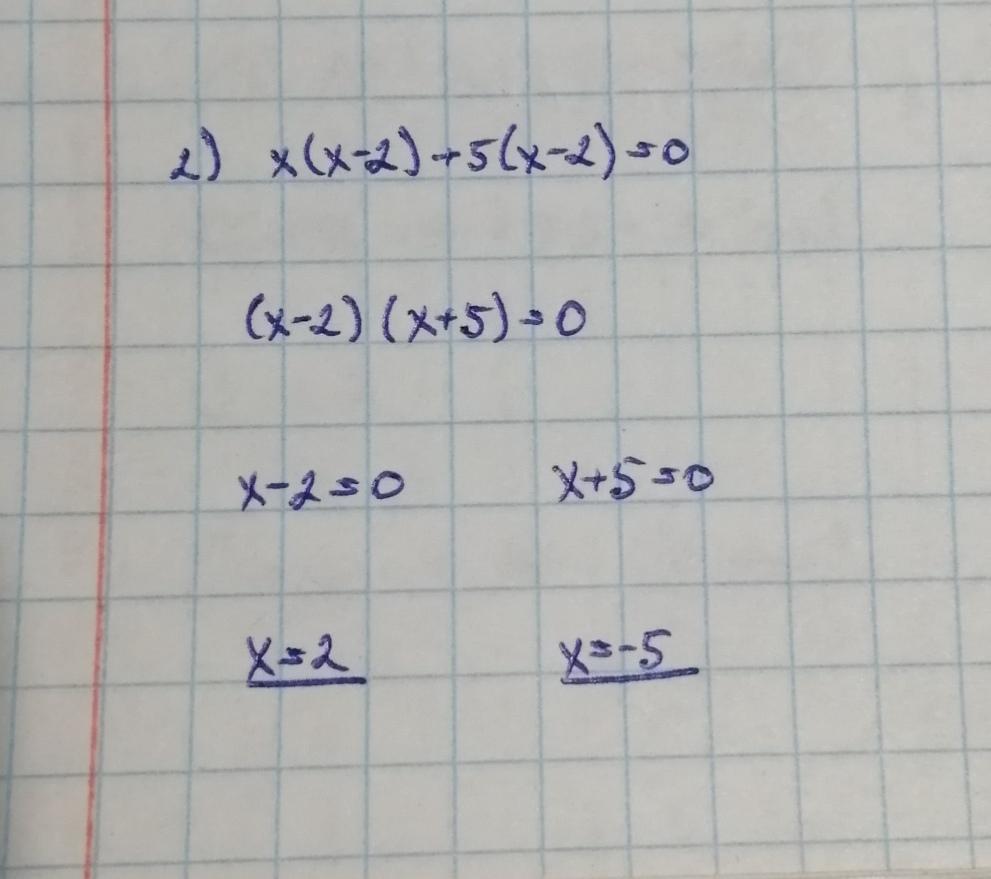 2) x(x-2)+5(x-2)=0
(x-2) (x+5)=0
x-2=0 x+5=0
x=2 x=-5